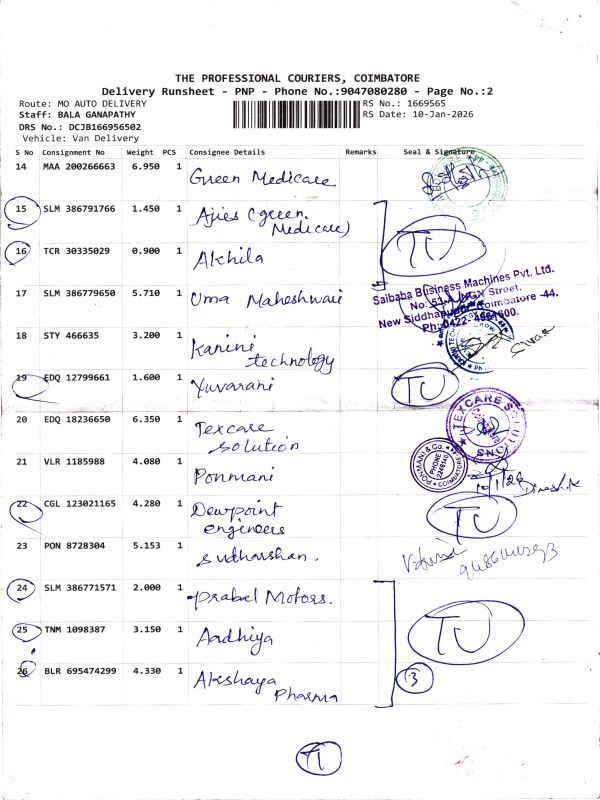 THE PROFESSIONAL COURIERS, COIMBATORE
Delivery Runsheet - PNP - Phone No.:9047080280 - Page No.:2
Route: MO AUTO DELIVERY
RS No.: 1669565
Staff: BALA GANAPATHY
RS Date: 10-Jan-2026
DRS No.: DCJB166956502
Vehicle: Van Delivery
S No Consignment No Weight PCS Consignee Details Remarks Seal & Signature
14 MAA 200266663 6.950 1 Green Medicare
15 SLM 386791766 1.450 1 Ajies (green
Medicare)
TU
16 TCR 30335029 0.900 1 Akhila
17 SLM 386779650 5.710 1 Uma Maheshwari
Saibaba Business Machines Pvt. Ltd.
No: 51-A, NGN Street,
New Siddhapudur, Coimbatore -44.
Ph: 0422-
18 STY 466635 3.200 1 Kanini
technology
19 EDQ 12799661 1.600 1 Yuvarani TU
20 EDQ 18236650 6.350 1 Texcare
solution
TEXCARE SOLUTIONS
21 VLR 1185988 4.080 1 Ponmani
PONMANI & Co. PHONE COIMBATORE
10/1/26 Dinesh.K
22 CGL 123021165 4.280 1 Dewpoint
engineers
TU
23 PON 8728304 5.153 1 sudharshan.
24 SLM 386771571 2.000 1 prabal Motors.
25 TNM 1098387 3.150 1 Aadhiya TU
26 BLR 695474299 4.330 1 Akshaya
Pharma
3